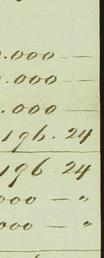 .000 —
.000 —
.000 —
196. 24
196 24
000 — "
000 — "